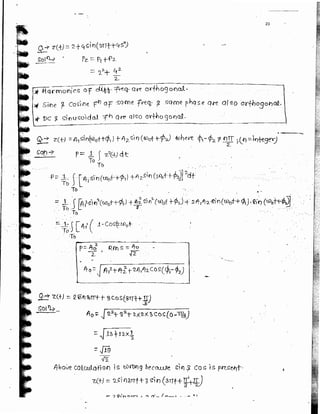 Q→ x(t) = 2+4sin(3πt+45°)
Solⁿ→ Pt = P1+P2
= 2² + 4²/2
* Harmonics of diff freq. are orthogonal.
* Sine & Cosine fⁿ of same freq. & same phase are also orthogonal.
* DC & sinusoidal fⁿ are also orthogonal.
Q→ x(t) = A1 sin(ω0t+ϕ1) + A2 sin(ω0t+ϕ2) where ϕ1-ϕ2 ≠ nπ/2 ; (n = integer)
Solⁿ→ P = 1/T0 ∫T0 x²(t) dt
P = 1/T0 ∫T0 [A1 sin(ω0t+ϕ1) + A2 sin(ω0t+ϕ2)]² dt
= 1/T0 ∫T0 [A1² sin²(ω0t+ϕ1) + A2² sin²(ω0t+ϕ2) + 2A1A2 sin(ω0t+ϕ1).sin(ω0t+ϕ2)]
= 1/T0 ∫T0 [A1² ( 1-Cos2ω0t
P = A0²/2 Rms = A0/√2
A0 = √A1²+A2²+2A1A2 cos(ϕ1-ϕ2)
Q→ x(t) = 2sin3πt + 3cos(3πt+π/3)
Solⁿ→ A0 = √2²+3²+2x2x3 cos(0-π/3)
= √13+12x1/2
= √19
√2
Above calculation is wrong because sin & cos is present
x(t) = 2sin3πt + 3 sin(3πt+π/3+π/2)